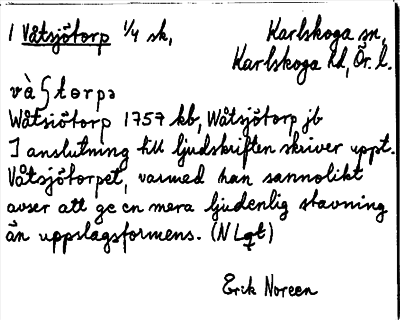 1 Våtsjötorp 1/4 sk, Karlskoga sn,
Karlskoga hd, Ör. l.
và ʃtorpə
Wåtsiötorp 1757 kb, Wåtsjötorp jb
I anslutning till ljudskriften skriver uppt.
Våtsjötorpet, varmed han sannolikt
avser att ge en mera ljudenlig stavning
än uppslagsformens. (N Lqt)
Erik Noreen